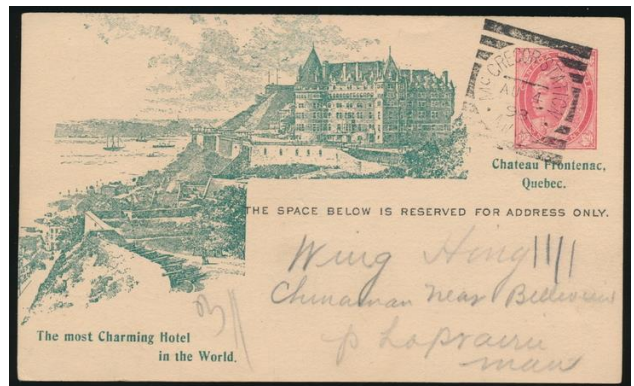 McGREGOR STATION
AU
4
98
Chateau Frontenac,
Quebec.
THE SPACE BELOW IS RESERVED FOR ADDRESS ONLY.
Wing Hing
Chinaman near Bellevue
p Laprairie
man
The most Charming Hotel
in the World.